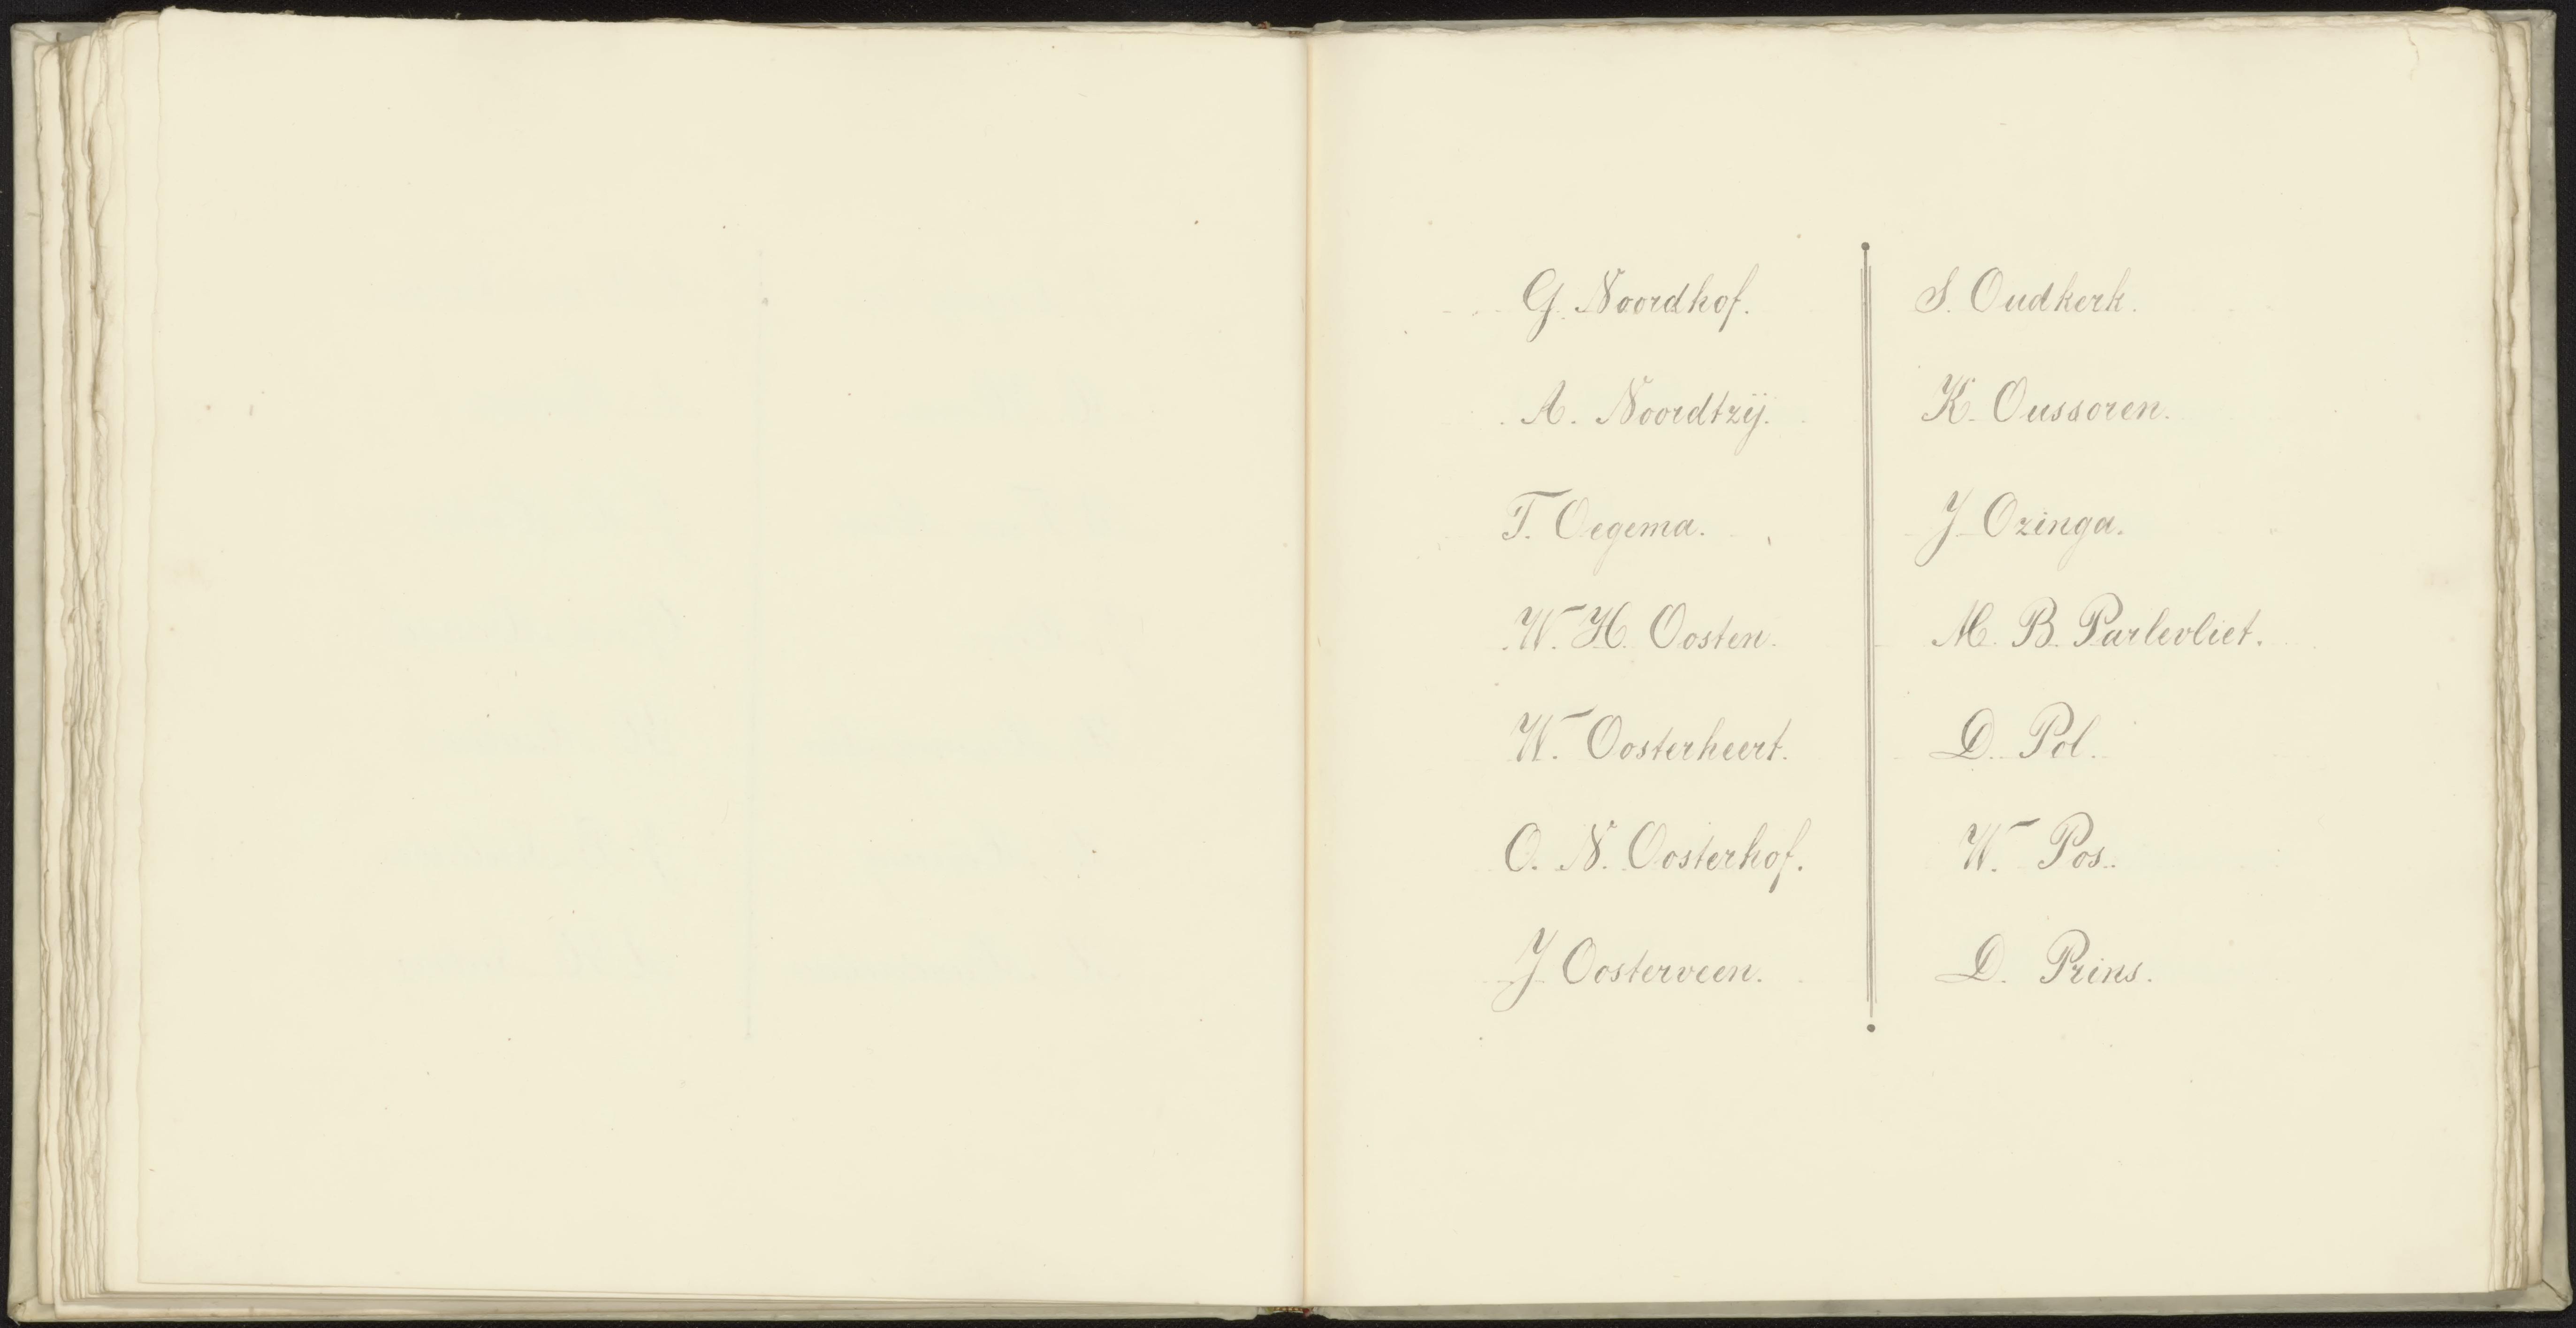 G. Noordhof.
A. Noordtzij.
T. Oegema.
W. H. Oosten.
W. Oosterheert.
O. N. Oosterhof.
J. Oosterveen.
S. Oudkerk.
K. Oussoren.
J. Ozinga.
M. B. Parlevliet.
D. Pol.
W. Pos.
D. Prins.